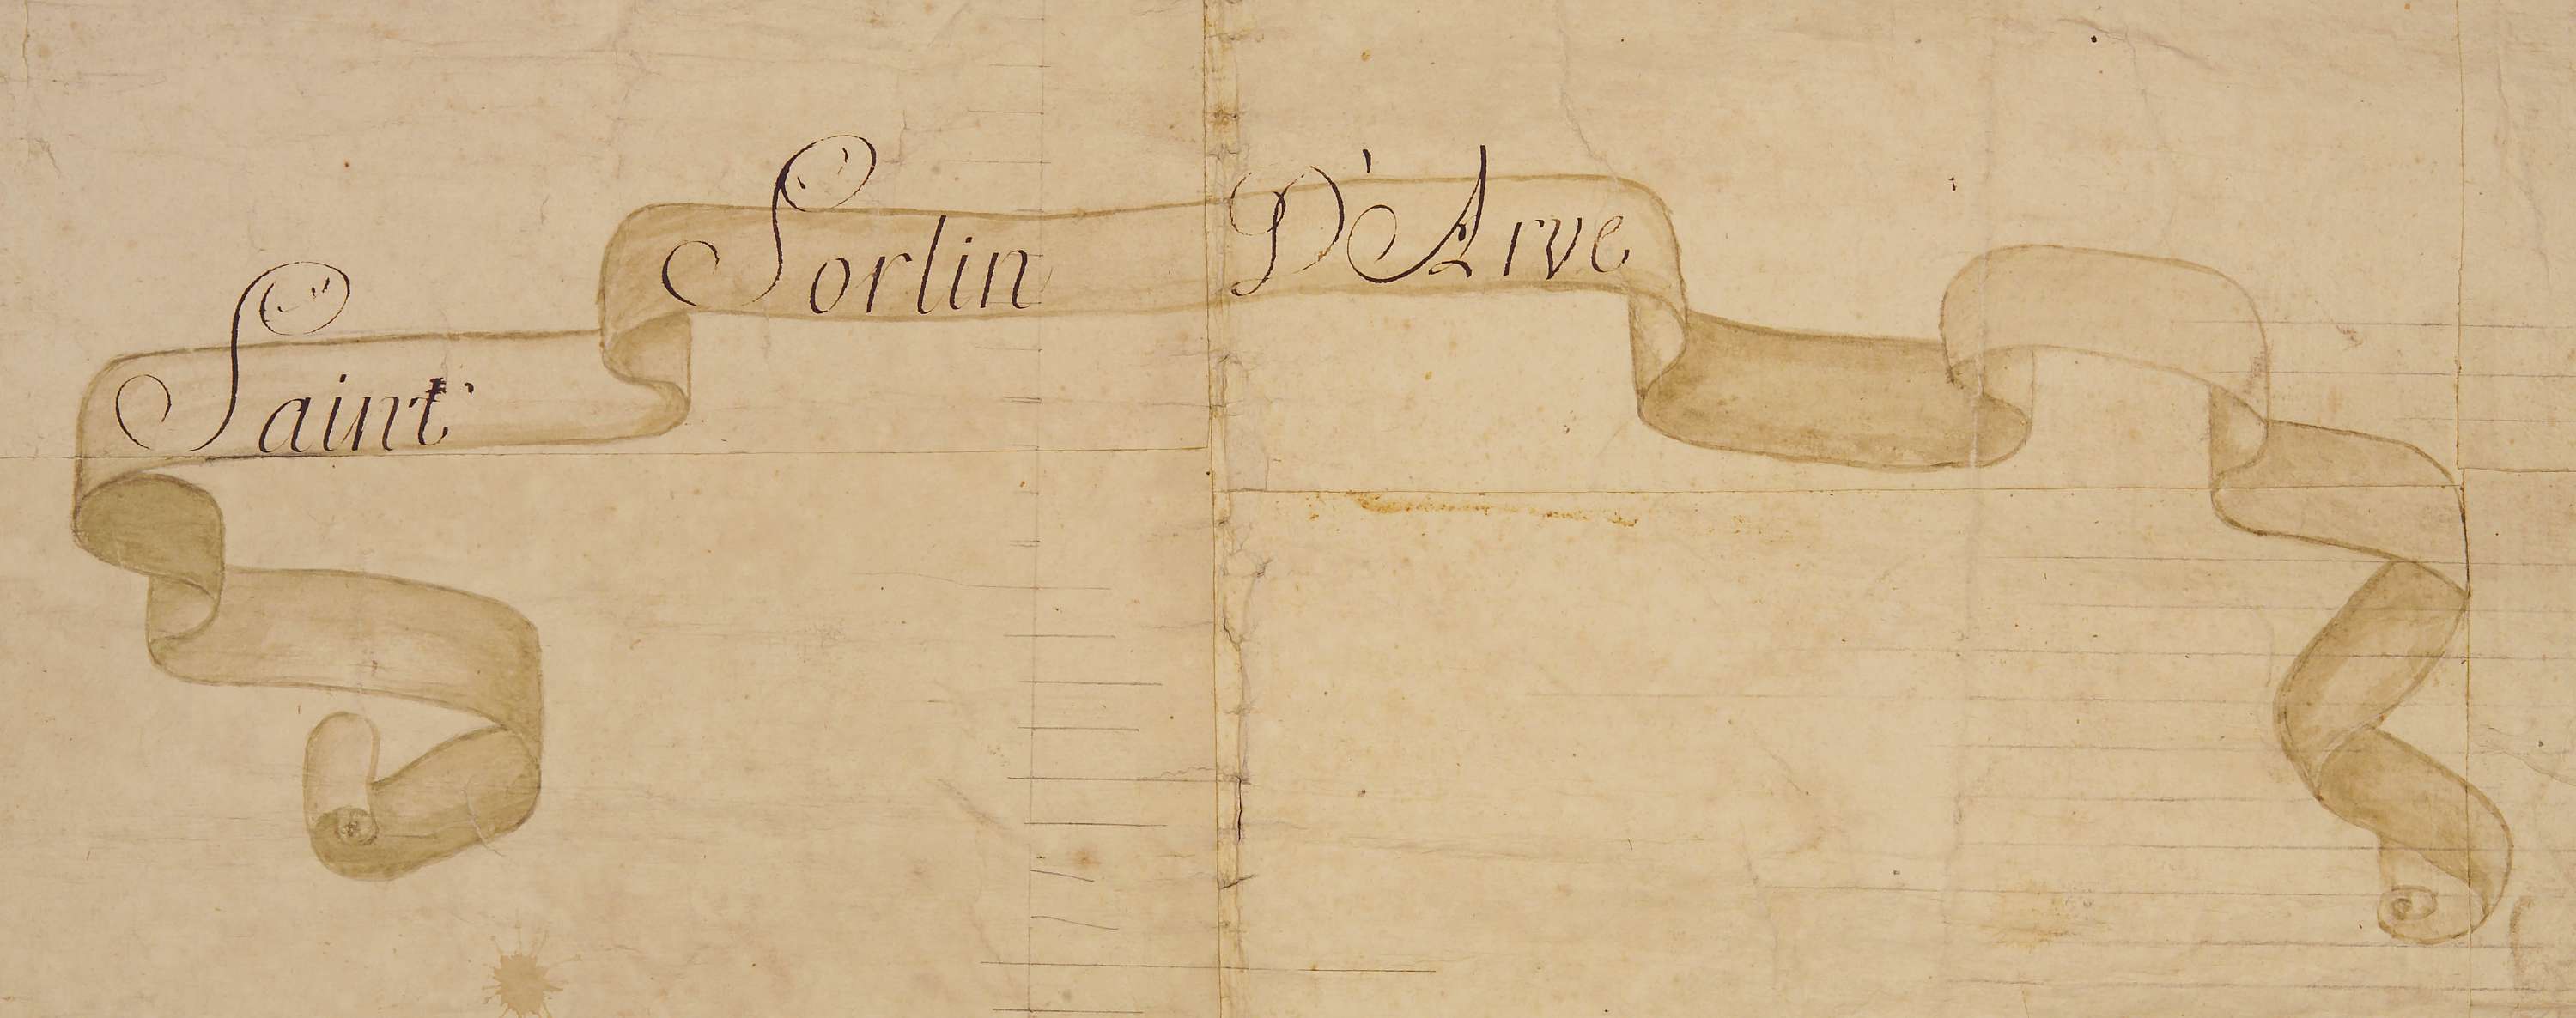 Saint Sorlin D'Arve